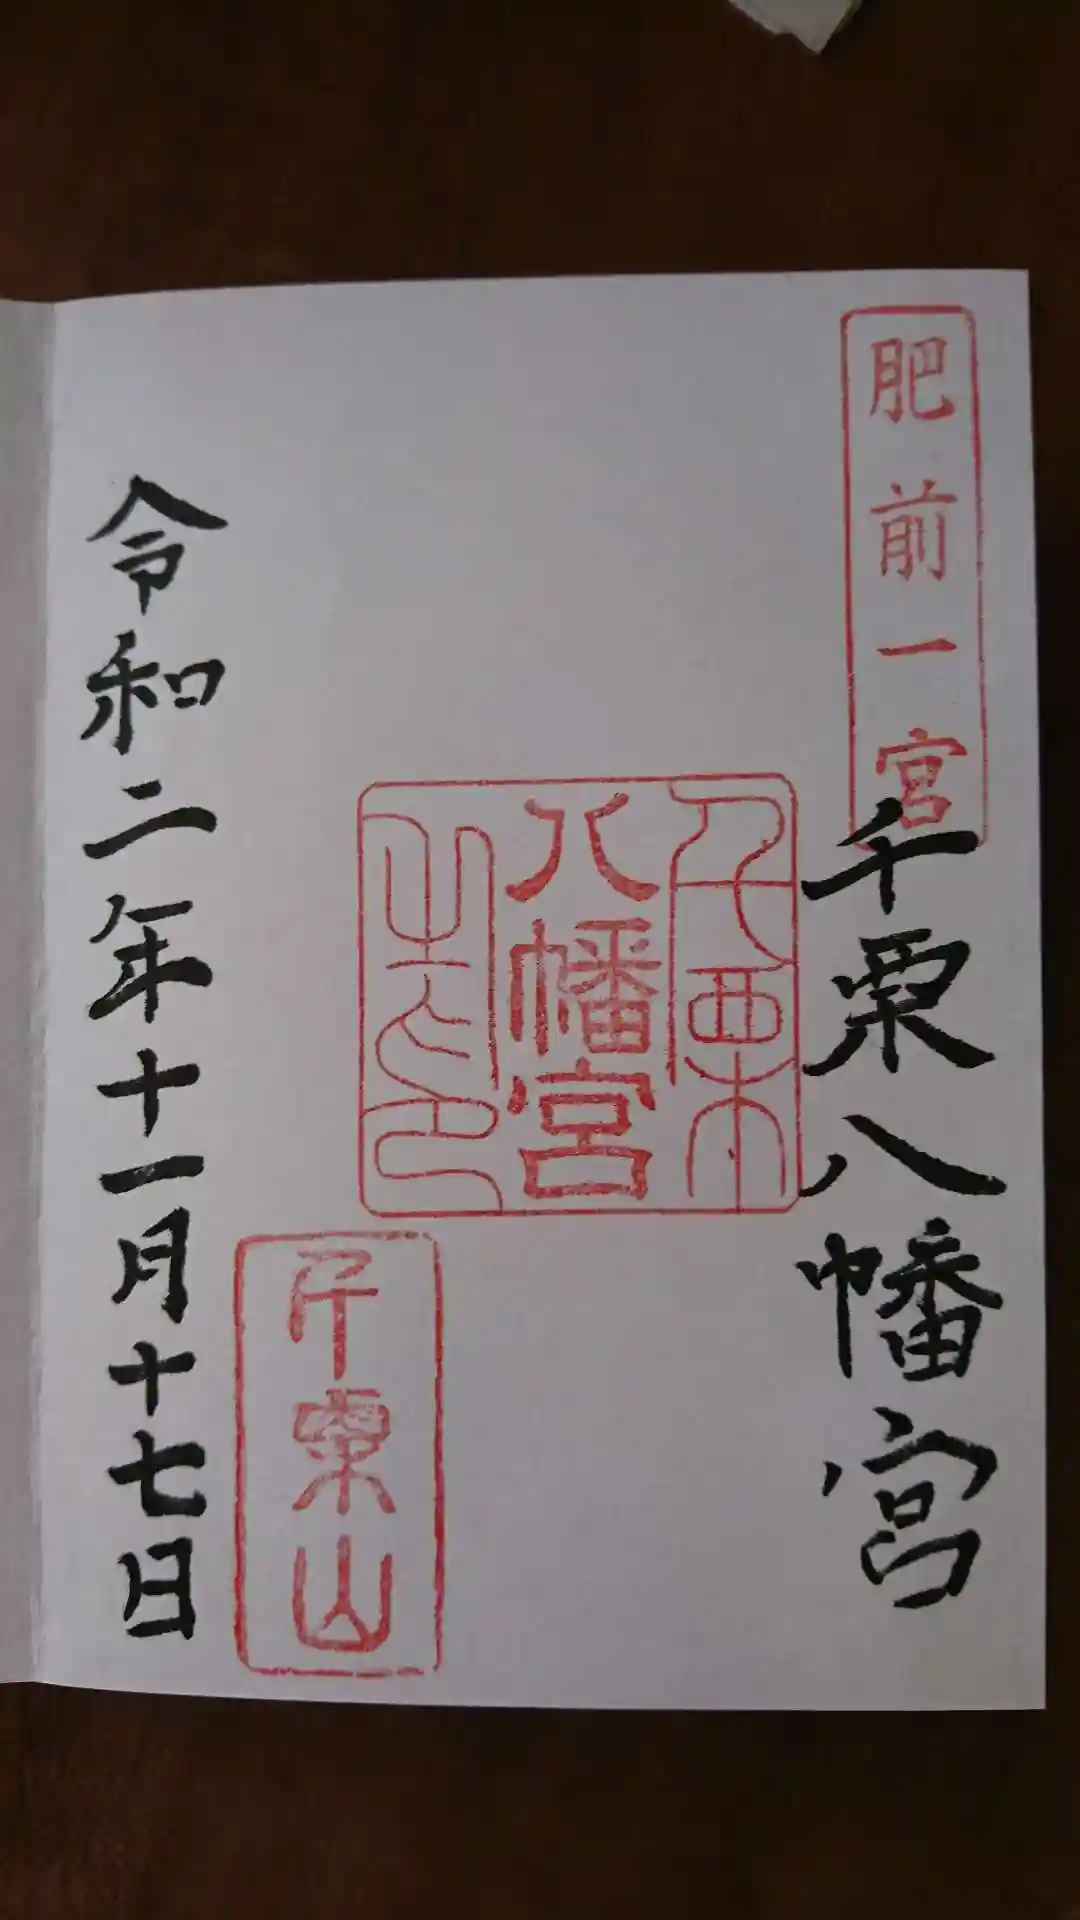 肥前一宮
千栗八幡宮
千栗
八幡宮
之印
千栗山
令和二年十一月十七日